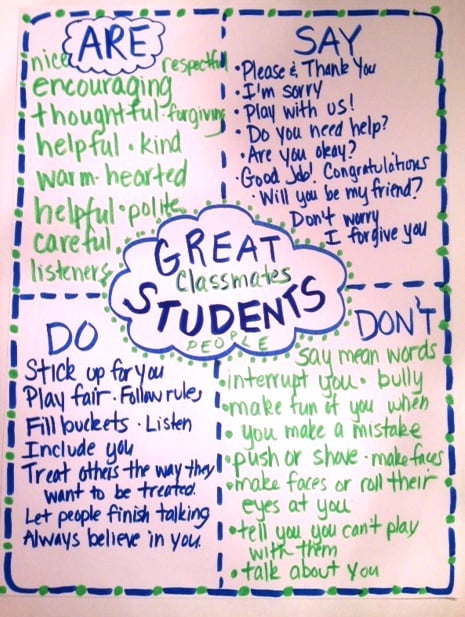 ARE
nice respectful
encouraging
thoughtful · forgiving
helpful · kind
warm-hearted
helpful · polite
careful
listeners
SAY
· Please & Thank You
· I'm sorry
· Play with us!
· Do you need help?
· Are you okay?
· Good Job! Congratulations
· Will you be my friend?
Don't worry
I forgive you
GREAT
Classmates
STUDENTS
PEOPLE
DO
Stick up for you
Play fair · Follow rules
Fill buckets · Listen
Include you
Treat others the way they
want to be treated.
Let people finish talking
Always believe in you.
DON'T
say mean words
· interrupt you · bully
· make fun of you when
· you make a mistake
· push or shove · make faces
· make faces or roll their
eyes at you
· tell you you can't play
with them
· talk about you